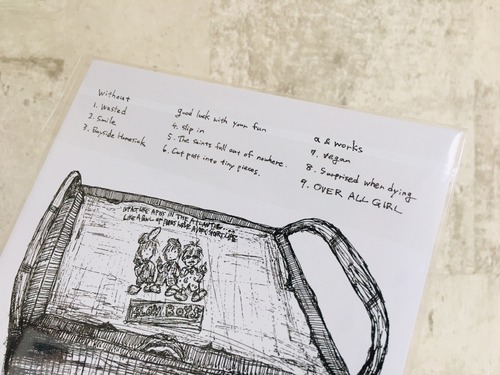 Without
1. Wasted
2. Smile
3. Bayside Homesick
good luck with your fun
4. slip in
5. The saints fall out of nowhere.
6. Cut past into tiny pieces.
a & works
7. vegan
8. Surprised when dying
9. OVER ALL GIRL
IN THE
LIKE A
SLUM BOYS